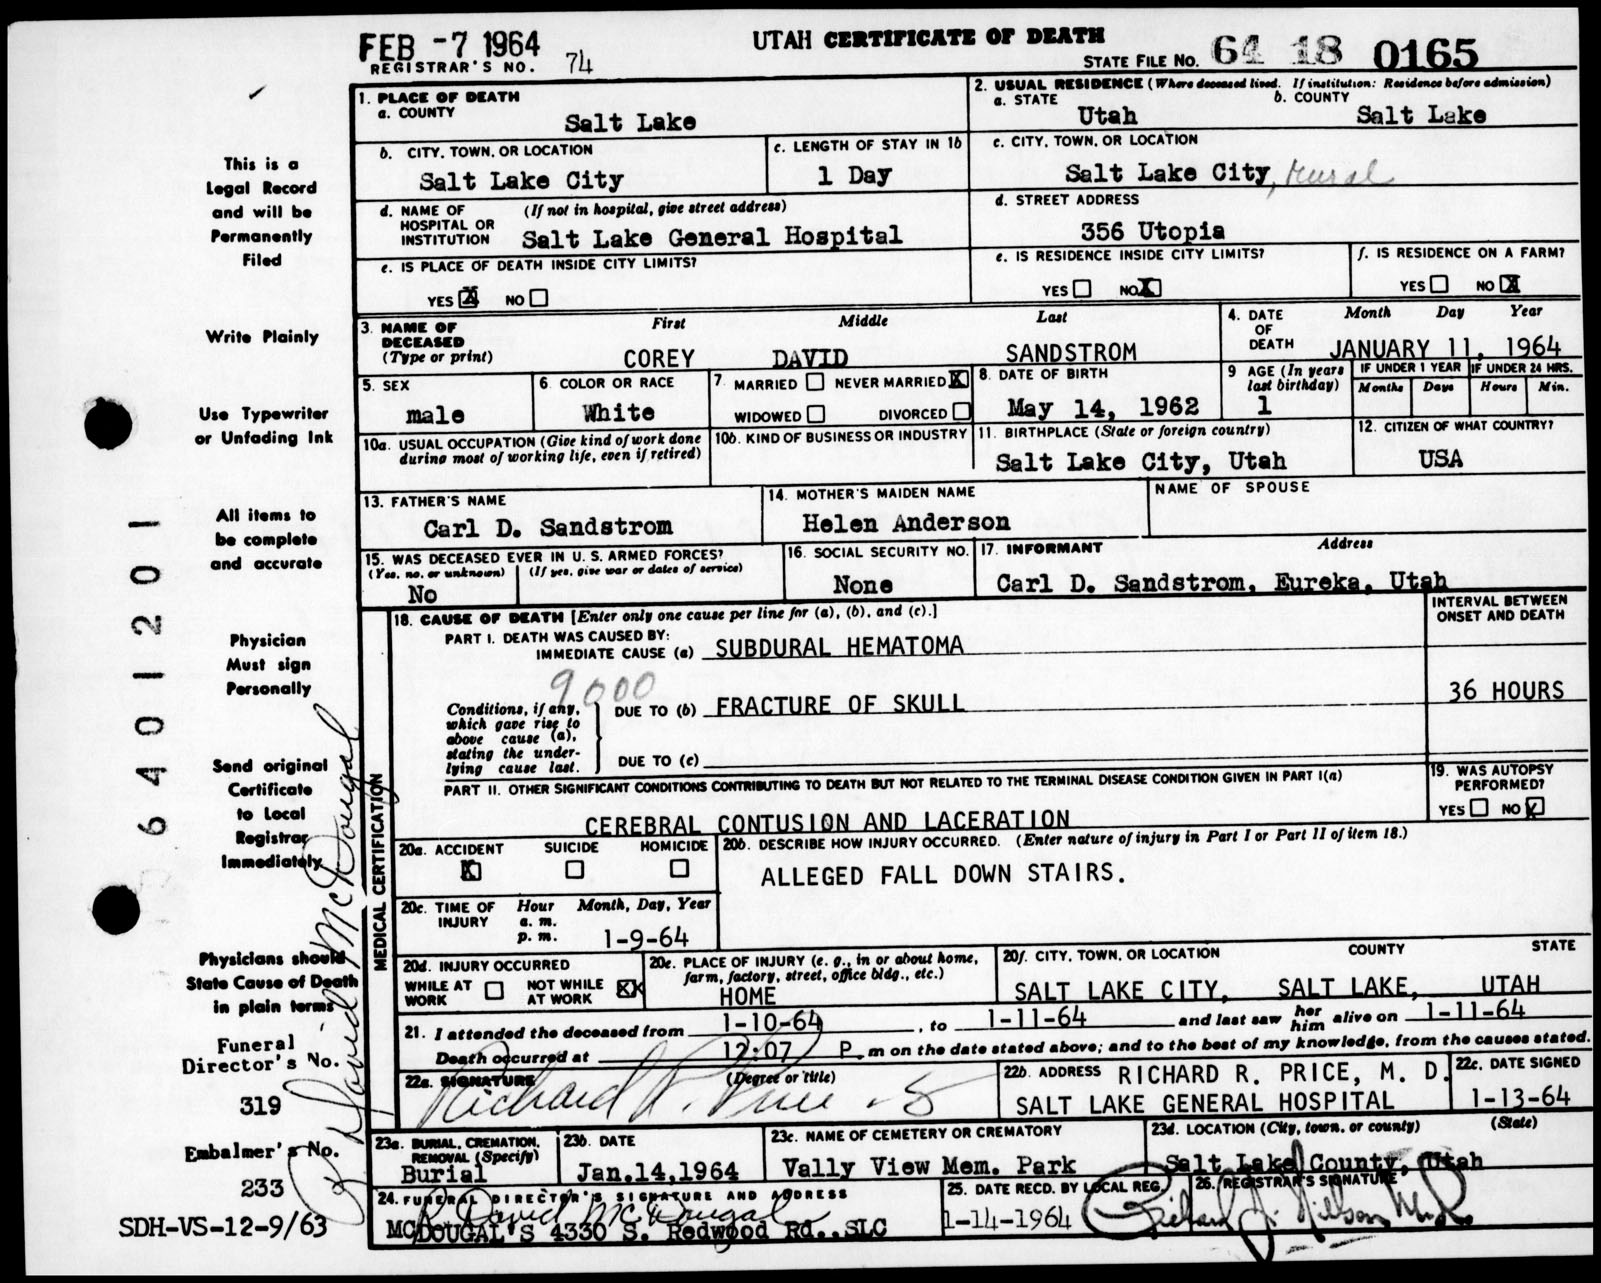 FEB -7 1964
UTAH CERTIFICATE OF DEATH
REGISTRAR'S NO. 74
STATE FILE NO. 64 18 0165
1. PLACE OF DEATH
a. COUNTY
Salt Lake
2. USUAL RESIDENCE (Where deceased lived. If institution: Residence before admission)
a. STATE b. COUNTY
Utah Salt Lake
b. CITY, TOWN, OR LOCATION
Salt Lake City
c. LENGTH OF STAY IN 1b
1 Day
c. CITY, TOWN, OR LOCATION
Salt Lake City, Rural
d. NAME OF HOSPITAL OR INSTITUTION (If not in hospital, give street address)
Salt Lake General Hospital
d. STREET ADDRESS
356 Utopia
e. IS PLACE OF DEATH INSIDE CITY LIMITS?
YES X NO
e. IS RESIDENCE INSIDE CITY LIMITS?
YES NO X
f. IS RESIDENCE ON A FARM?
YES NO X
3. NAME OF DECEASED (Type or print)
First Middle Last
COREY DAVID SANDSTROM
4. DATE OF DEATH
Month Day Year
JANUARY 11, 1964
5. SEX
male
6. COLOR OR RACE
White
7. MARRIED NEVER MARRIED X
WIDOWED DIVORCED
8. DATE OF BIRTH
May 14, 1962
9 AGE (In years last birthday)
1
IF UNDER 1 YEAR
Months Days
IF UNDER 24 HRS.
Hours Min.
10a. USUAL OCCUPATION (Give kind of work done during most of working life, even if retired)
10b. KIND OF BUSINESS OR INDUSTRY
11. BIRTHPLACE (State or foreign country)
Salt Lake City, Utah
12. CITIZEN OF WHAT COUNTRY?
USA
13. FATHER'S NAME
Carl D. Sandstrom
14. MOTHER'S MAIDEN NAME
Helen Anderson
NAME OF SPOUSE
15. WAS DECEASED EVER IN U. S. ARMED FORCES?
(Yes, no, or unknown) (If yes, give war or dates of service)
No
16. SOCIAL SECURITY NO.
None
17. INFORMANT Address
Carl D. Sandstrom, Eureka, Utah
MEDICAL CERTIFICATION
18. CAUSE OF DEATH [Enter only one cause per line for (a), (b), and (c).]
PART I. DEATH WAS CAUSED BY:
IMMEDIATE CAUSE (a) SUBDURAL HEMATOMA
9000
Conditions, if any, which gave rise to above cause (a), stating the underlying cause last.
DUE TO (b) FRACTURE OF SKULL
DUE TO (c)
INTERVAL BETWEEN ONSET AND DEATH
36 HOURS
PART II. OTHER SIGNIFICANT CONDITIONS CONTRIBUTING TO DEATH BUT NOT RELATED TO THE TERMINAL DISEASE CONDITION GIVEN IN PART I(a)
CEREBRAL CONTUSION AND LACERATION
19. WAS AUTOPSY PERFORMED?
YES NO X
20a. ACCIDENT SUICIDE HOMICIDE
X
20b. DESCRIBE HOW INJURY OCCURRED. (Enter nature of injury in Part I or Part II of item 18.)
ALLEGED FALL DOWN STAIRS.
20c. TIME OF INJURY
Hour Month, Day, Year
a. m.
p. m. 1-9-64
20d. INJURY OCCURRED
WHILE AT WORK NOT WHILE AT WORK XX
20e. PLACE OF INJURY (e. g., in or about home, farm, factory, street, office bldg., etc.)
HOME
20f. CITY, TOWN, OR LOCATION COUNTY STATE
SALT LAKE CITY, SALT LAKE, UTAH
21. I attended the deceased from 1-10-64, to 1-11-64 and last saw her him alive on 1-11-64
Death occurred at 12:07 P. m on the date stated above; and to the best of my knowledge, from the causes stated.
22a. SIGNATURE (Degree or title)
Richard R. Price
22b. ADDRESS RICHARD R. PRICE, M. D.
SALT LAKE GENERAL HOSPITAL
22c. DATE SIGNED
1-13-64
23a. BURIAL, CREMATION, REMOVAL (Specify)
Burial
23b. DATE
Jan.14,1964
23c. NAME OF CEMETERY OR CREMATORY
Vally View Mem. Park
23d. LOCATION (City, town, or county) (State)
Salt Lake County, Utah
24. FUNERAL DIRECTOR'S SIGNATURE AND ADDRESS
R David McDougal
MCDOUGAL'S 4330 S. Redwood Rd., SLC
25. DATE RECD. BY LOCAL REG.
1-14-1964
26. REGISTRAR'S SIGNATURE
This is a
Legal Record
and will be
Permanently
Filed
Write Plainly
Use Typewriter
or Unfading Ink
All items to
be complete
and accurate
Physician
Must sign
Personally
Send original
Certificate
to Local
Registrar
Immediately
Physicians should
State Cause of Death
in plain terms
Funeral
Director's No.
319
Embalmer's No.
233
SDH-VS-12-9/63
R David McDougal
6401201